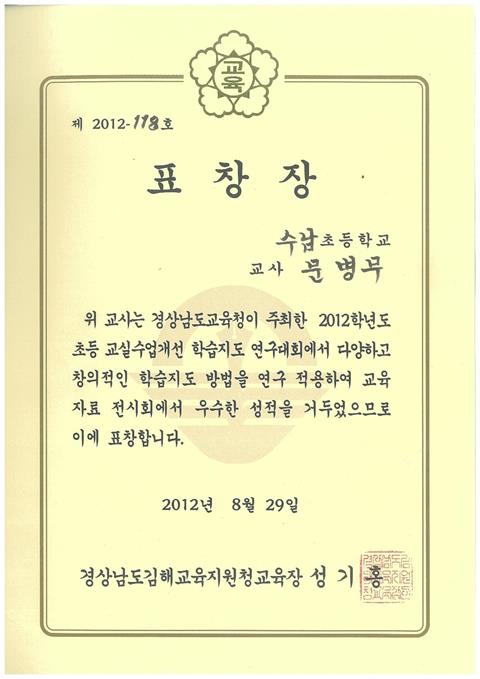 교육
제 2012-118호
표 창 장
수남초등학교
교사 문병무
위 교사는 경상남도교육청이 주최한 2012학년도
초등 교실수업개선 학습지도 연구대회에서 다양하고
창의적인 학습지도 방법을 연구 적용하여 교육
자료 전시회에서 우수한 성적을 거두었으므로
이에 표창합니다.
2012년 8월 29일
경상남도김해교육지원청교육장 성 기 홍